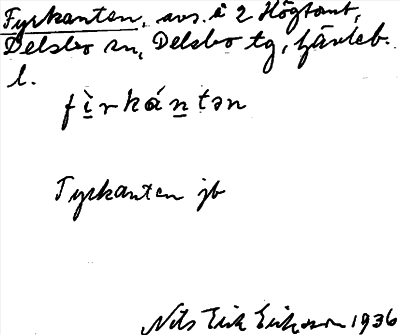 Fyrkanten, avs. å 2 Högtomt,
Delsbo sn, Delsbo tg, Gävleb.
l.
fìrkántən
Fyrkanten jb
Nils Erik Eriksson 1936